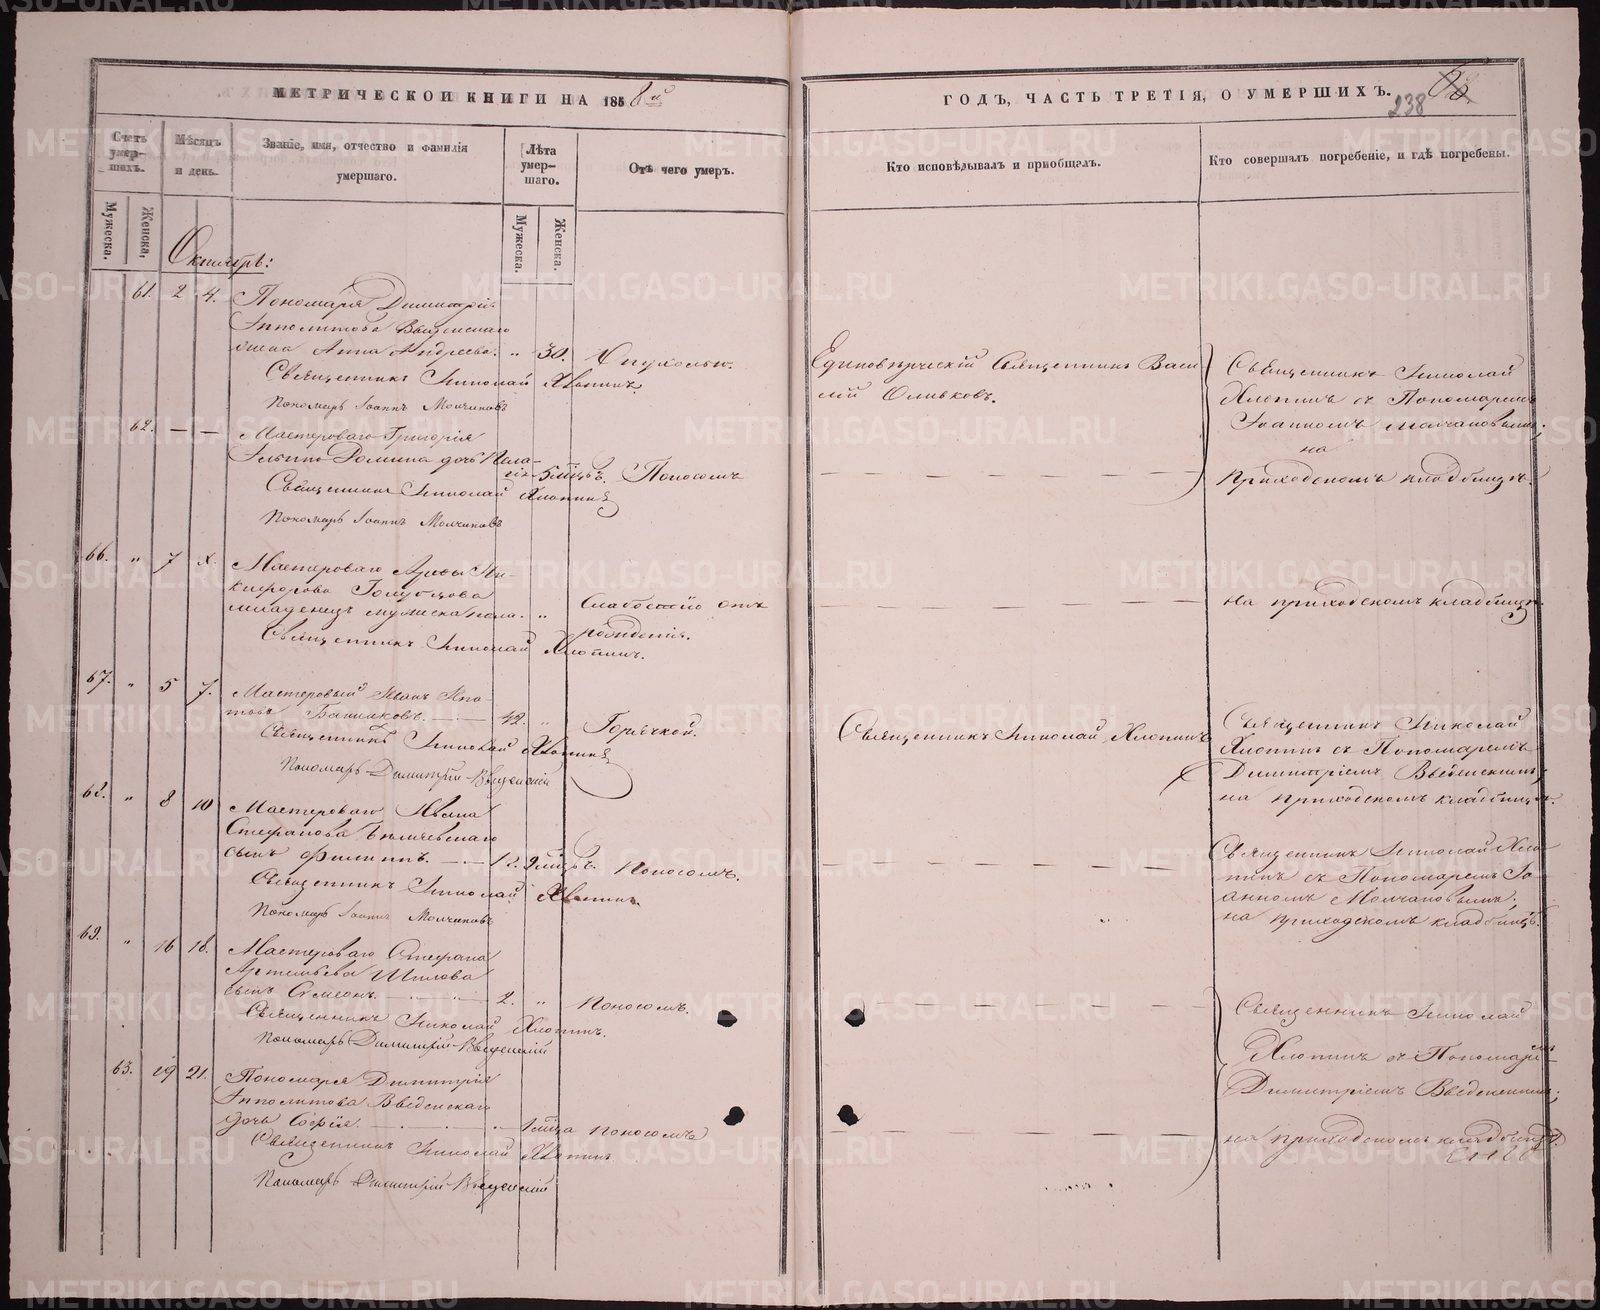 МЕТРИЧЕСКОЙ КНИГИ НА 1858й
ГОДЪ, ЧАСТЬ ТРЕТІЯ, О УМЕРШИХЪ.
238
Счетъ умер-шихъ.
Мѣсяцъ и день.
Званіе, имя, отчество и фамилія умершаго.
Лѣта умер-шаго.
Отъ чего умеръ.
Кто исповѣдывалъ и приобщалъ.
Кто совершалъ погребеніе, и гдѣ погребены.
Мужеска.
Женска.
Мужеска.
Женска.
Октябрь:
61. 2 4. Пономаря Димитрія
Ипполитова Введенскаго
жена Анна Андреева. " 30. Опухолью.
Священникъ Николай Хлопинъ.
Пономарь Іоаннъ Молчановъ
Единовѣрческій Священникъ Васи
лій Оливковъ.
Священникъ Николай
Хлопинъ съ Пономаремъ
Іоанномъ Молчановымъ;
на
приходскомъ кладбищѣ.
62. — — Мастероваго Григорія
Ильина дочь Пела-
гія 5 мѣсяцъ. Поносомъ
Священникъ Николай Хлопинъ
Пономарь Іоаннъ Молчановъ
66. " 7 Мастероваго Ни-
кифорова Голубцова
младенецъ мужеска пола. " Слабостію отъ
рожденія.
Священникъ Николай Хлопинъ.
на приходскомъ кладбищѣ.
67. " 5 7. Мастеровый Иванъ
Башмаковъ. 42. " Горячкой.
Священникъ Николай Хлопинъ
Пономарь Димитрій Введенскій
Священникъ Николай Хлопинъ
Священникъ Николай
Хлопинъ съ Пономаремъ
Димитріемъ Введенскимъ;
на приходскомъ кладбищѣ.
68. " 8 10 Мастероваго Ивана
Стефанова
сынъ Филиппъ. Поносомъ.
Священникъ Николай Хлопинъ.
Пономарь Іоаннъ Молчановъ
Священникъ Николай Хло
пинъ съ Пономаремъ Іо-
анномъ Молчановымъ;
на приходскомъ кладбищѣ.
69. " 16 18. Мастероваго Стефана
Артемьева Шилова
сынъ Симеонъ. 2. " Поносомъ.
Священникъ Николай Хлопинъ.
Пономарь Димитрій Введенскій
Священникъ Николай
Хлопинъ съ Пономаремъ
Димитріемъ Введенскимъ;
на приходскомъ кладбищѣ.
63. 19 21. Пономаря Димитрія
Ипполитова Введенскаго
дочь Софія. " 1 мѣсяца Поносомъ
Священникъ Николай Хлопинъ
Пономарь Димитрій Введенскій
METRIKI.GASO-URAL.RU